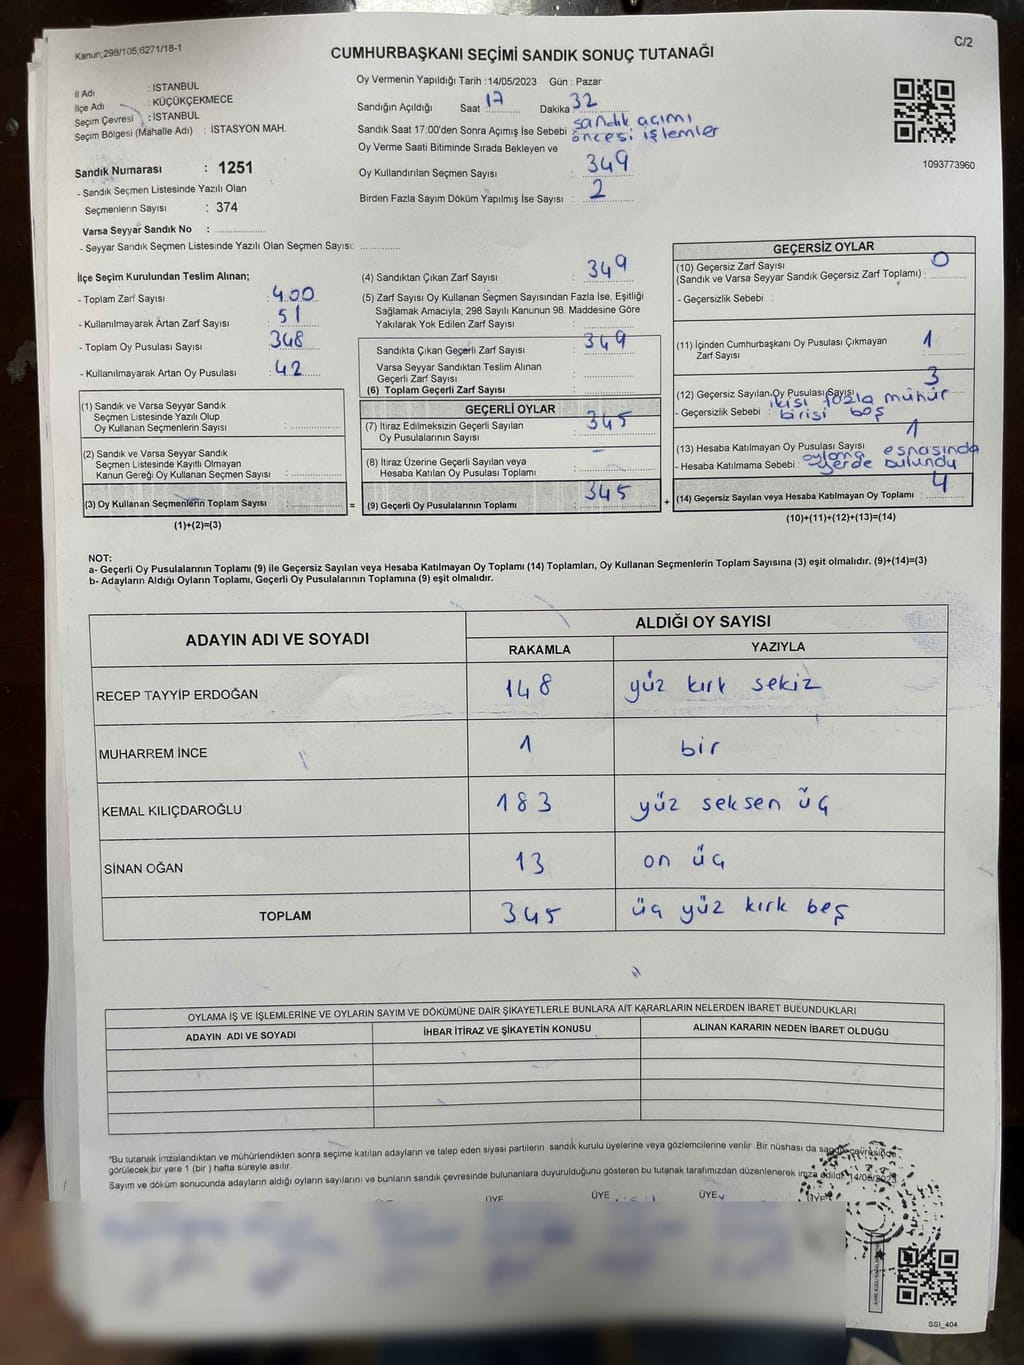 Kanun;298/105;6271/18-1
C/2
CUMHURBAŞKANI SEÇİMİ SANDIK SONUÇ TUTANAĞI
İl Adı : İSTANBUL
İlçe Adı : KÜÇÜKÇEKMECE
Seçim Çevresi : İSTANBUL
Seçim Bölgesi (Mahalle Adı) : İSTASYON MAH.
Sandık Numarası : 1251
- Sandık Seçmen Listesinde Yazılı Olan
Seçmenlerin Sayısı : 374
Varsa Seyyar Sandık No :
- Seyyar Sandık Seçmen Listesinde Yazılı Olan Seçmen Sayısı:
Oy Vermenin Yapıldığı Tarih :14/05/2023 Gün : Pazar
Sandığın Açıldığı Saat 17 Dakika 32
Sandık Saat 17:00'den Sonra Açımış İse Sebebi : sandık açımı
öncesi işlemler
Oy Verme Saati Bitiminde Sırada Bekleyen ve
Oy Kullandırılan Seçmen Sayısı : 349
Birden Fazla Sayım Döküm Yapılmış İse Sayısı : 2
1093773960
İlçe Seçim Kurulundan Teslim Alınan;
- Toplam Zarf Sayısı : 400
- Kullanılmayarak Artan Zarf Sayısı : 51
- Toplam Oy Pusulası Sayısı : 348
- Kullanılmayarak Artan Oy Pusulası : 42
(1) Sandık ve Varsa Seyyar Sandık
Seçmen Listesinde Yazılı Olup
Oy Kullanan Seçmenlerin Sayısı :
(2) Sandık ve Varsa Seyyar Sandık
Seçmen Listesinde Kayıtlı Olmayan
Kanun Gereği Oy Kullanan Seçmen Sayısı :
(3) Oy Kullanan Seçmenlerin Toplam Sayısı :
(1)+(2)=(3)
=
(4) Sandıktan Çıkan Zarf Sayısı : 349
(5) Zarf Sayısı Oy Kullanan Seçmen Sayısından Fazla İse, Eşitliği
Sağlamak Amacıyla; 298 Sayılı Kanunun 98. Maddesine Göre
Yakılarak Yok Edilen Zarf Sayısı :
Sandıkta Çıkan Geçerli Zarf Sayısı : 349
Varsa Seyyar Sandıktan Teslim Alınan
Geçerli Zarf Sayısı :
(6) Toplam Geçerli Zarf Sayısı :
GEÇERLİ OYLAR
(7) İtiraz Edilmeksizin Geçerli Sayılan
Oy Pusulalarının Sayısı : 345
(8) İtiraz Üzerine Geçerli Sayılan veya
Hesaba Katılan Oy Pusulası Toplamı : -
(9) Geçerli Oy Pusulalarının Toplamı : 345
+
GEÇERSİZ OYLAR
(10) Geçersiz Zarf Sayısı
(Sandık ve Varsa Seyyar Sandık Geçersiz Zarf Toplamı) : 0
- Geçersizlik Sebebi :
(11) İçinden Cumhurbaşkanı Oy Pusulası Çıkmayan
Zarf Sayısı : 1
(12) Geçersiz Sayılan Oy Pusulası Sayısı : 3
- Geçersizlik Sebebi : ikisi fazla mühür
birisi boş
(13) Hesaba Katılmayan Oy Pusulası Sayısı 1
- Hesaba Katılmama Sebebi : oylama esnasında
yerde bulundu
(14) Geçersiz Sayılan veya Hesaba Katılmayan Oy Toplamı : 4
(10)+(11)+(12)+(13)=(14)
NOT:
a- Geçerli Oy Pusulalarının Toplamı (9) ile Geçersiz Sayılan veya Hesaba Katılmayan Oy Toplamı (14) Toplamları, Oy Kullanan Seçmenlerin Toplam Sayısına (3) eşit olmalıdır. (9)+(14)=(3)
b- Adayların Aldığı Oyların Toplamı, Geçerli Oy Pusulalarının Toplamına (9) eşit olmalıdır.
ADAYIN ADI VE SOYADI ALDIĞI OY SAYISI
RAKAMLA YAZIYLA
RECEP TAYYİP ERDOĞAN 148 yüz kırk sekiz
MUHARREM İNCE 1 bir
KEMAL KILIÇDAROĞLU 183 yüz seksen üç
SİNAN OĞAN 13 on üç
TOPLAM 345 üç yüz kırk beş
OYLAMA İŞ VE İŞLEMLERİNE VE OYLARIN SAYIM VE DÖKÜMÜNE DAİR ŞİKAYETLERLE BUNLARA AİT KARARLARIN NELERDEN İBARET BULUNDUKLARI
ADAYIN ADI VE SOYADI İHBAR İTİRAZ VE ŞİKAYETİN KONUSU ALINAN KARARIN NEDEN İBARET OLDUĞU
*Bu tutanak imzalandıktan ve mühürlendikten sonra seçime katılan adayların ve talep eden siyasi partilerin sandık kurulu üyelerine veya gözlemcilerine verilir. Bir nüshası da sandık çevresinde
görülecek bir yere 1 (bir ) hafta süreyle asılır.
Sayım ve döküm sonucunda adayların aldığı oyların sayılarını ve bunların sandık çevresinde bulunanlara duyurulduğunu gösteren bu tutanak tarafımızdan düzenlenerek imza edildi. 14/05/2023
ÜYE ÜYE ÜYE ÜYE
SSİ_404